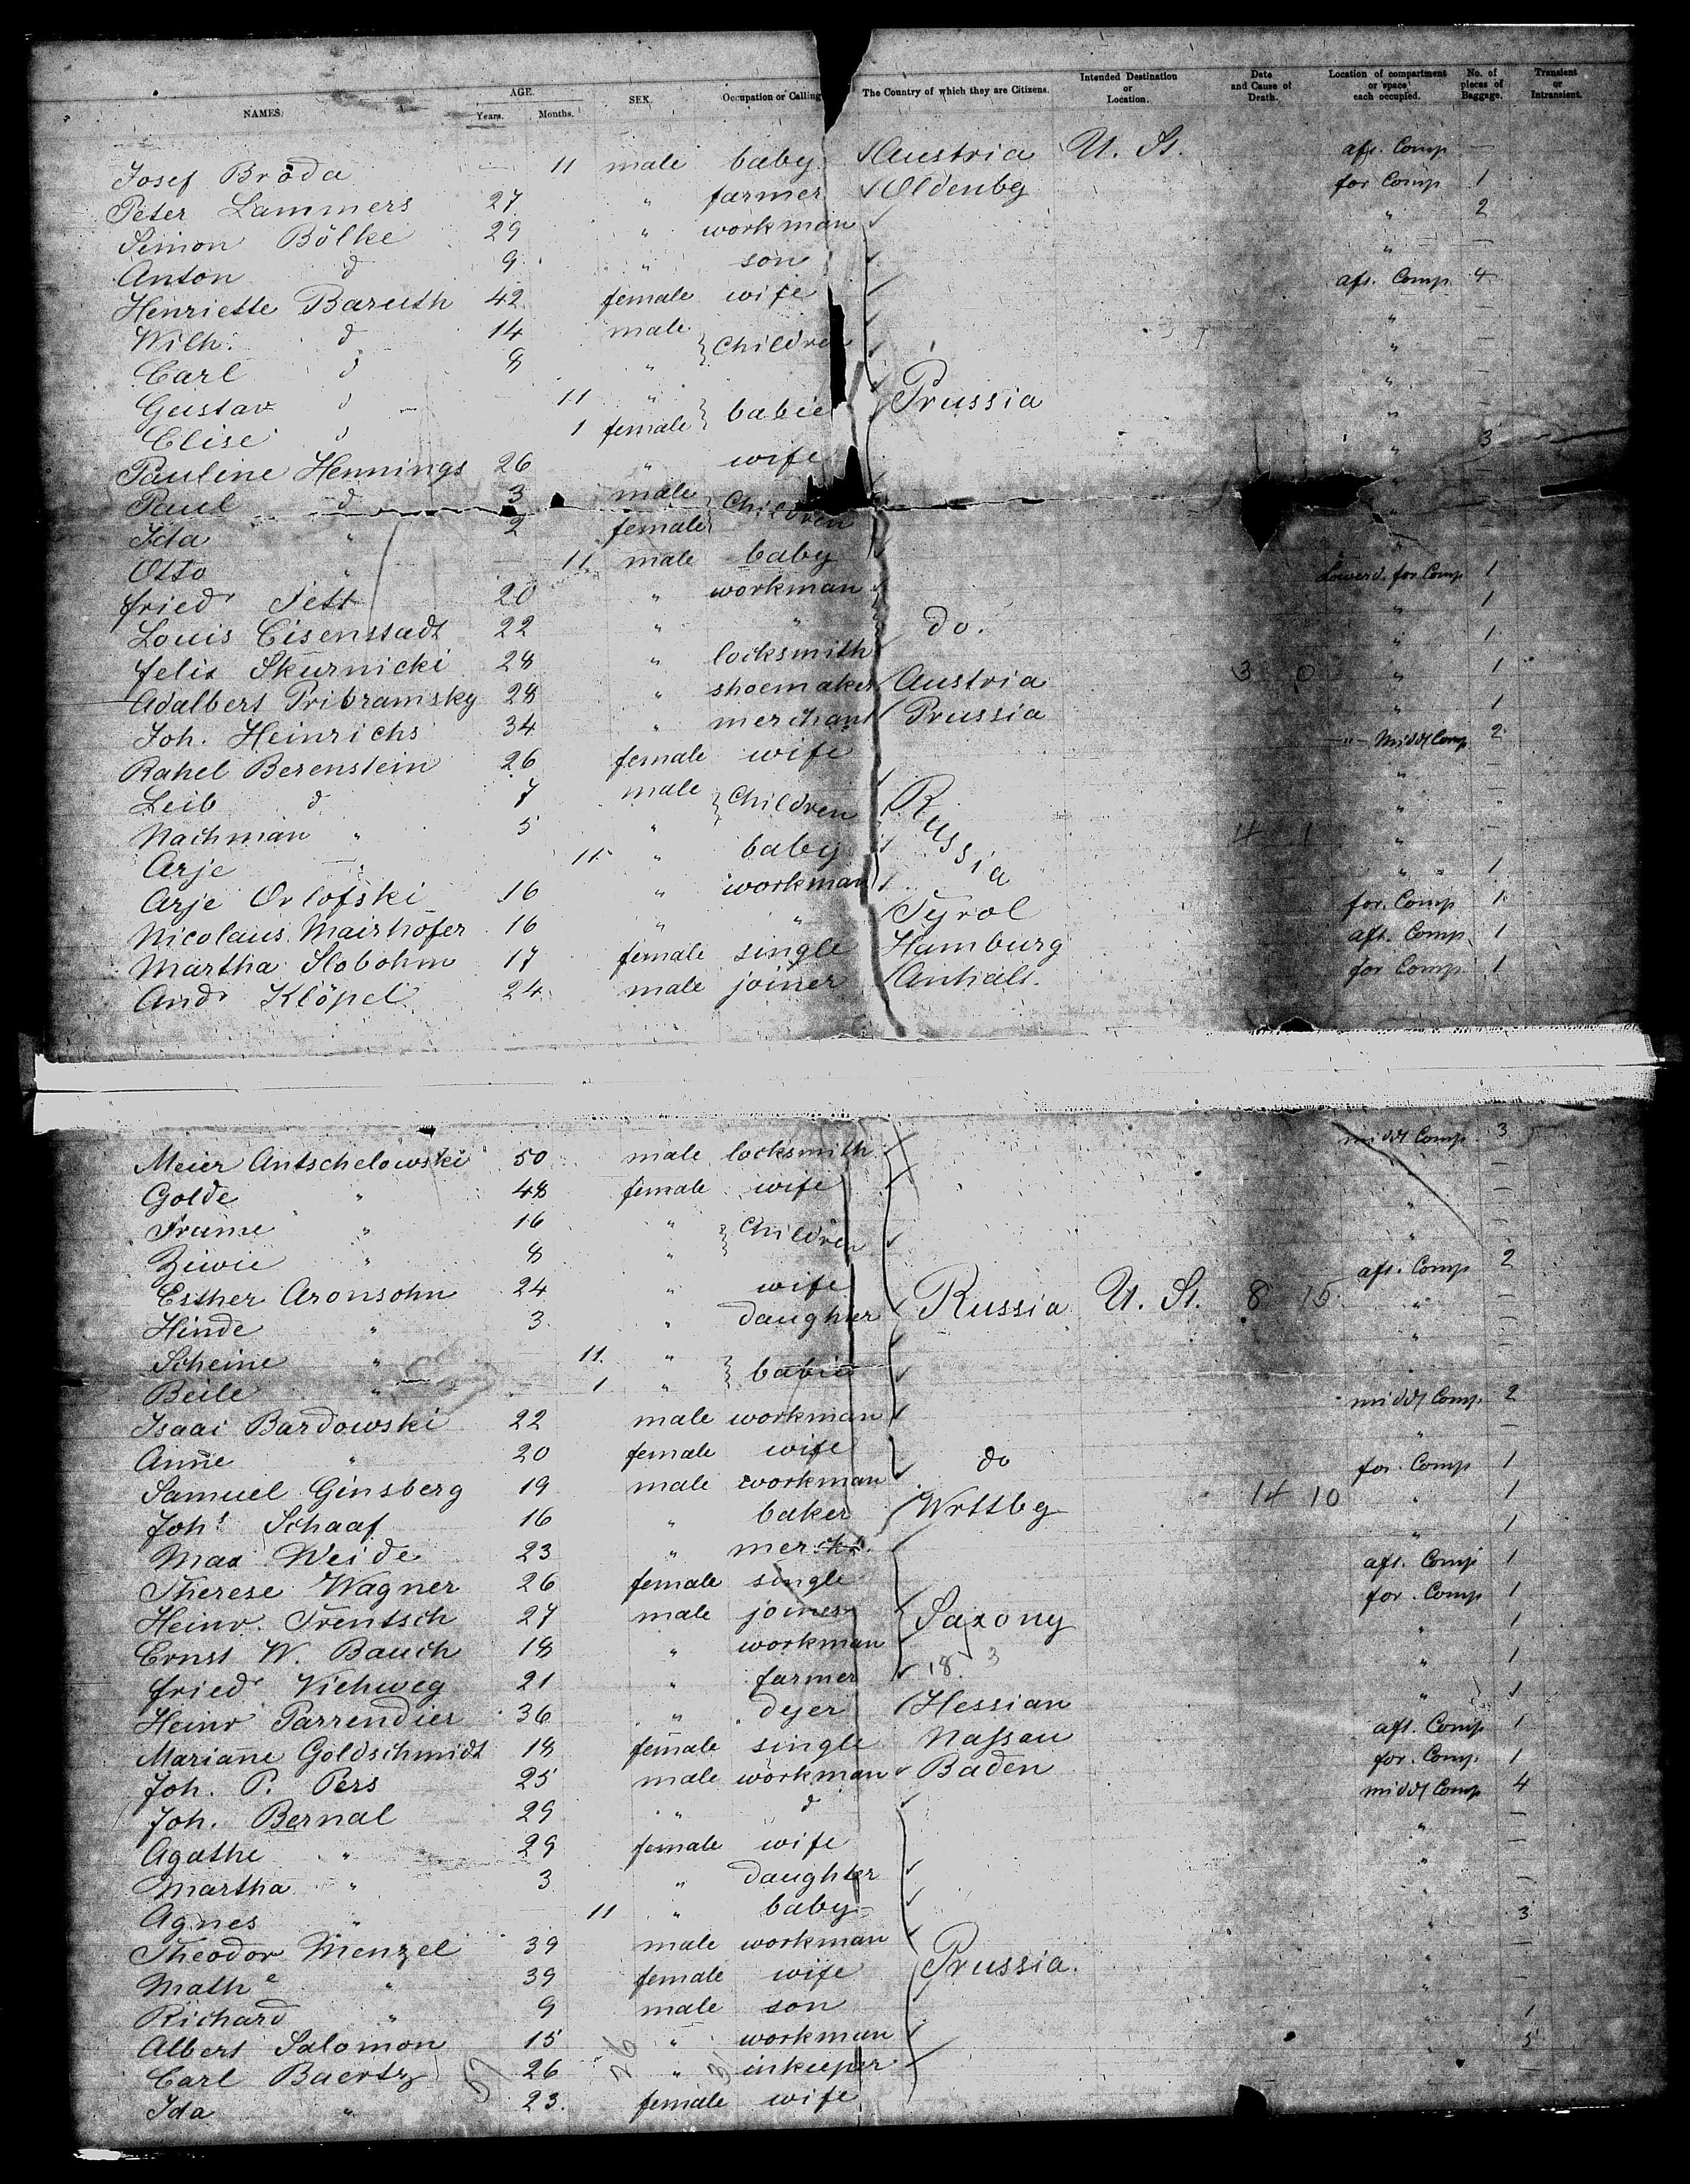 NAMES. AGE. Years. Months. SEX. Occupation or Calling The Country of which they are Citizens. Intended Destination or Location. Date and Cause of Death. Location of compartment or space each occupied. No. of pieces of Baggage. Transient or Intransient.
Josef Bröda — 11 male baby Austria U. St. aft. Comp —
Peter Lammers 27 " farmer Oldenbg for Comp 1
Simon Bölke 29 " workman " 2
Anton d 9 " son " —
Henriette Baruth 42 female wife aft. Comp 4
Wilh. d 14 male Children " —
Carl d 8 " " —
Gustav d — 11 " babie Prussia " —
Elise d 1 female " —
Pauline Hennings 26 " wife " 3
Paul d 3 male Children "
Ida " 2 female " —
Otto " — 11 male baby "
Fried Sett 20 " workman Lowerd. for Comp 1
Louis Eisenstadt 22 " " do. " 1
Felix Skurnicki 28 " locksmith " 1
Adalbert Pribramsky 28 " shoemaker Austria 3 0 " 1
Joh. Heinrichs 34 " merchant Prussia " 1
Rahel Berenstein 26 female wife —"— Middl Comp 2
Leib d 7 male Children Russia " —
Nachman " 5 " " "
Arje " 11 " baby 14 1 " —
Arje Orlofski 16 " workman " " 1
Nicolaus Mairhofer 16 " " Tyrol for. Comp 1
Martha Slobohm 17 female single Hamburg aft. Comp 1
Andr Klöpel 24 male joiner Anhalt. for Comp 1
Meier Antschelowski 50 male locksmith middl Comp 3
Golde " 48 female wife —
Frume " 16 " Children " —
Ziwie " 8 " " —
Esther Aronsohn 24 " wife aft. Comp 2
Hinde " 3 " daughter Russia U. St. 8 15 " —
Scheine " — 11 " babies " —
Beile " — 1 " —
Isaac Bardowski 22 male workman middl Comp. 2
Anne " 20 female wife " —
Samuel Ginsberg 19 male workman do for. Comp 1
Johs Schaaf 16 " baker Wrttbg 14 10 " 1
Max Weide 23 " mercht. " 1
Therese Wagner 26 female single aft. Comp 1
Heinr. Trentsch 27 male joiner Saxony for. Comp 1
Ernst W. Bauch 18 " workman " 1
Fried Viehweg 21 " farmer 18. 3 " 1
Heinr Parrendier 36 " dyer Hessian " 1
Mariane Goldschmidt 18 female single Nassau aft. Comp 1
Joh. P. Pers 25 male workman Baden for. Comp. 1
Joh. Bernal 29 " d middl Comp 4
Agathe " 29 female wife " —
Martha " 3 " daughter " —
Agnes " 11 " baby
Theodor Menzel 39 male workman " 3
Mathe " 39 female wife Prussia. " —
Richard " 9 male son " —
Albert Salomon 15 " workman " 1
Carl Baertz 26 " inkeeper 5
Ida " 23. female wife —